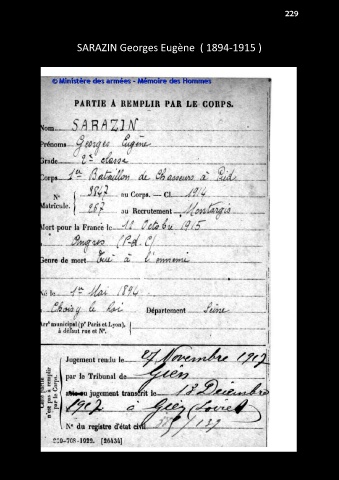 229
SARAZIN Georges Eugène ( 1894-1915 )
© Ministère des armées - Mémoire des Hommes
PARTIE À REMPLIR PAR LE CORPS.
Nom SARAZIN
Prénoms Georges Eugène
Grade 2e classe
Corps 1er Bataillon de Chasseurs à Pied
N° Matricule. 3847 au Corps. — Cl. 1914
267 au Recrutement Montargis
Mort pour la France le 12 Octobre 1915
à Angres (P-d-C)
Genre de mort Tué à l'ennemi
Né le 1er Mai 1894
à Choisy le Roi Département Seine
Arrt municipal (pr Paris et Lyon), à défaut rue et N°.
Cette partie n'est pas à remplir par le Corps.
Jugement rendu le 27 Novembre 1917
par le Tribunal de Gien
jugement transcrit le 18 Décembre
1917 à Gien (Loiret)
N° du registre d'état civil /137
[26434]